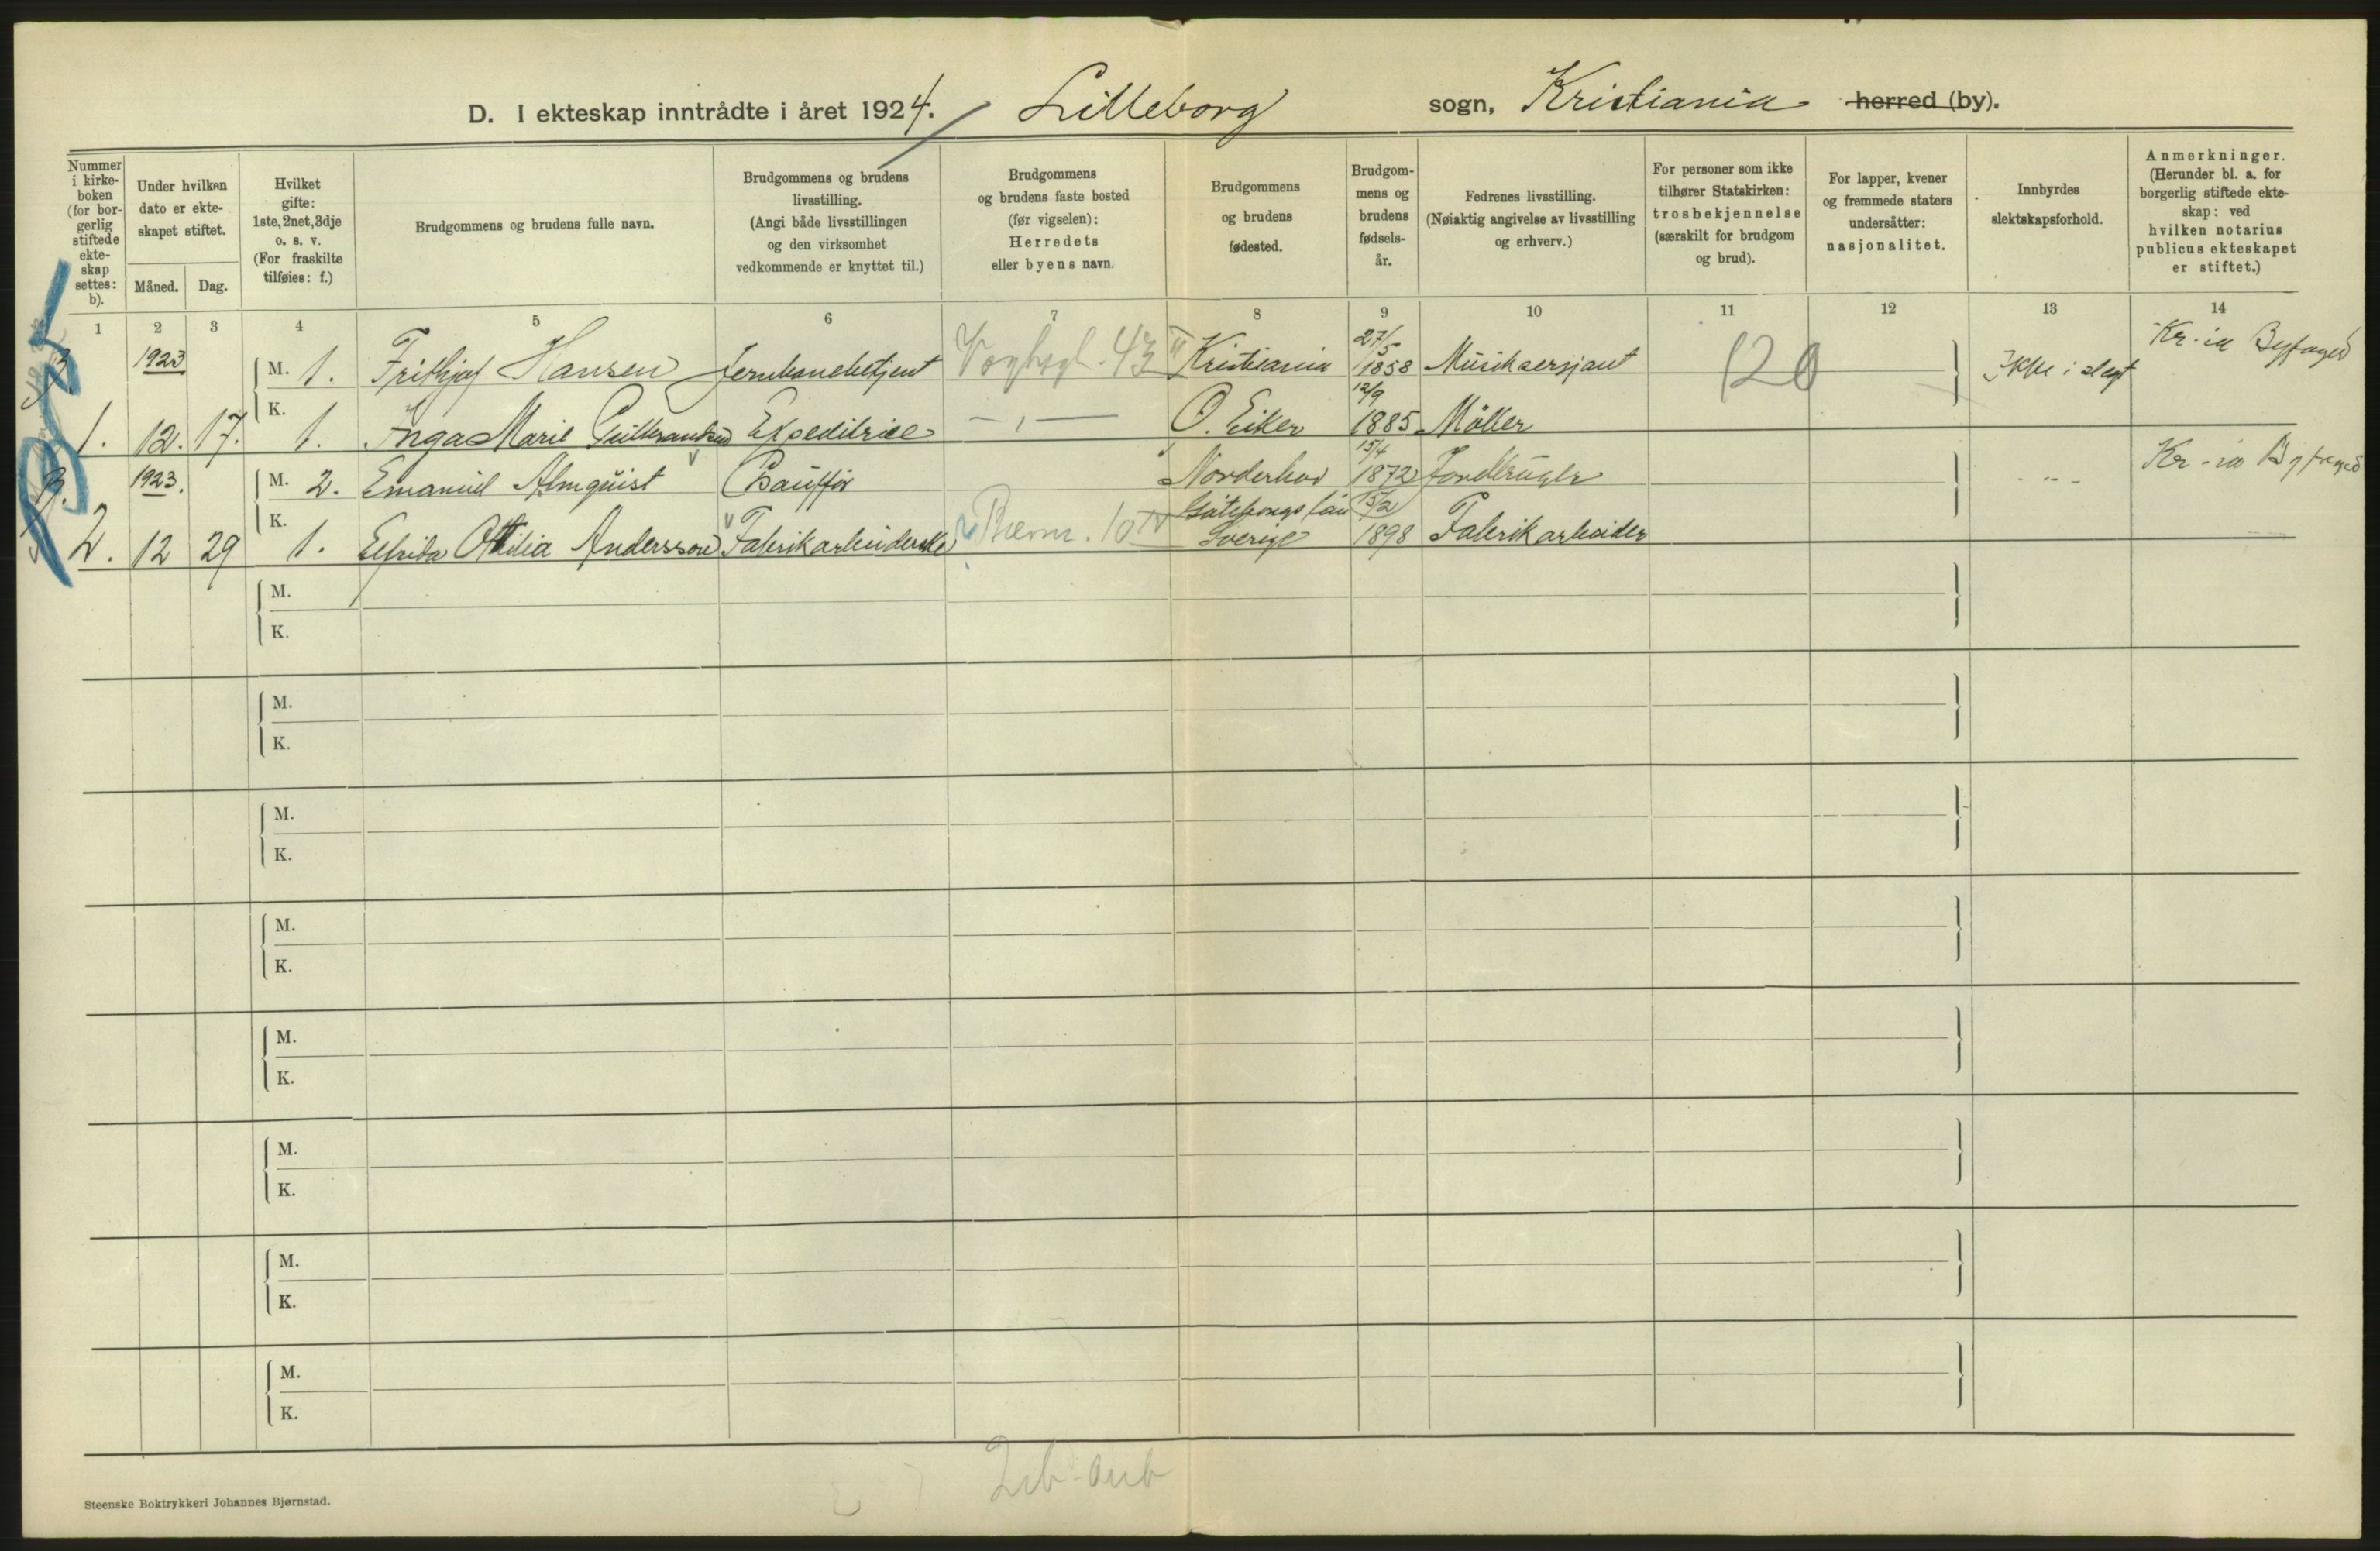 D. I ekteskap inntrådte i året 1924. Lilleborg sogn, Kristiania herred (by).
Nummer i kirkeboken (for borgerlig stiftede ekteskap settes: b).
Under hvilken dato er ekteskapet stiftet.
Måned. Dag.
Hvilket gifte: 1ste, 2net, 3dje o. s. v. (For fraskilte tilføies: f.)
Brudgommens og brudens fulle navn.
Brudgommens og brudens livsstilling. (Angi både livsstillingen og den virksomhet vedkommende er knyttet til.)
Brudgommens og brudens faste bosted (før vigselen): Herredets eller byens navn.
Brudgommens og brudens fødested.
Brudgommens og brudens fødselsår.
Fedrenes livsstilling. (Nøiaktig angivelse av livsstilling og erhverv.)
For personer som ikke tilhører Statskirken: trosbekjennelse (særskilt for brudgom og brud).
For lapper, kvener og fremmede staters undersåtter: nasjonalitet.
Innbyrdes slektskapsforhold.
Anmerkninger. (Herunder bl. a. for borgerlig stiftede ekteskap: ved hvilken notarius publicus ekteskapet er stiftet.)
1 2 3 4 5 6 7 8 9 10 11 12 13 14
B. 1923 M. 1. Frithjof Hansen Jernbanebetjent Vogtsgt. 43 II Kristiania 27/5 1858 Musikersjant (20 Ikke i slegt Kr-ia Byfoged
1. 12. 17. K. 1. Inga Marie Gulbrandsen Expeditrice - " - Ø. Eiker 12/9 1885 Møller
B. 1923. M. 2. Emanuel Almquist Chauffør Norderhov 15/4 1872 Jordbruger - " - Kr-ia Byfoged
2. 12 29 K. 1. Elfrida Ottilia Andersson Fabrikarbeiderske 10 IV Göteborgs län Sverige 15/2 1898 Fabrikarbeider
M.
K.
M.
K.
M.
K.
M.
K.
M.
K.
M.
K.
M.
K.
M.
K.
Steenske Boktrykkeri Johannes Bjørnstad.